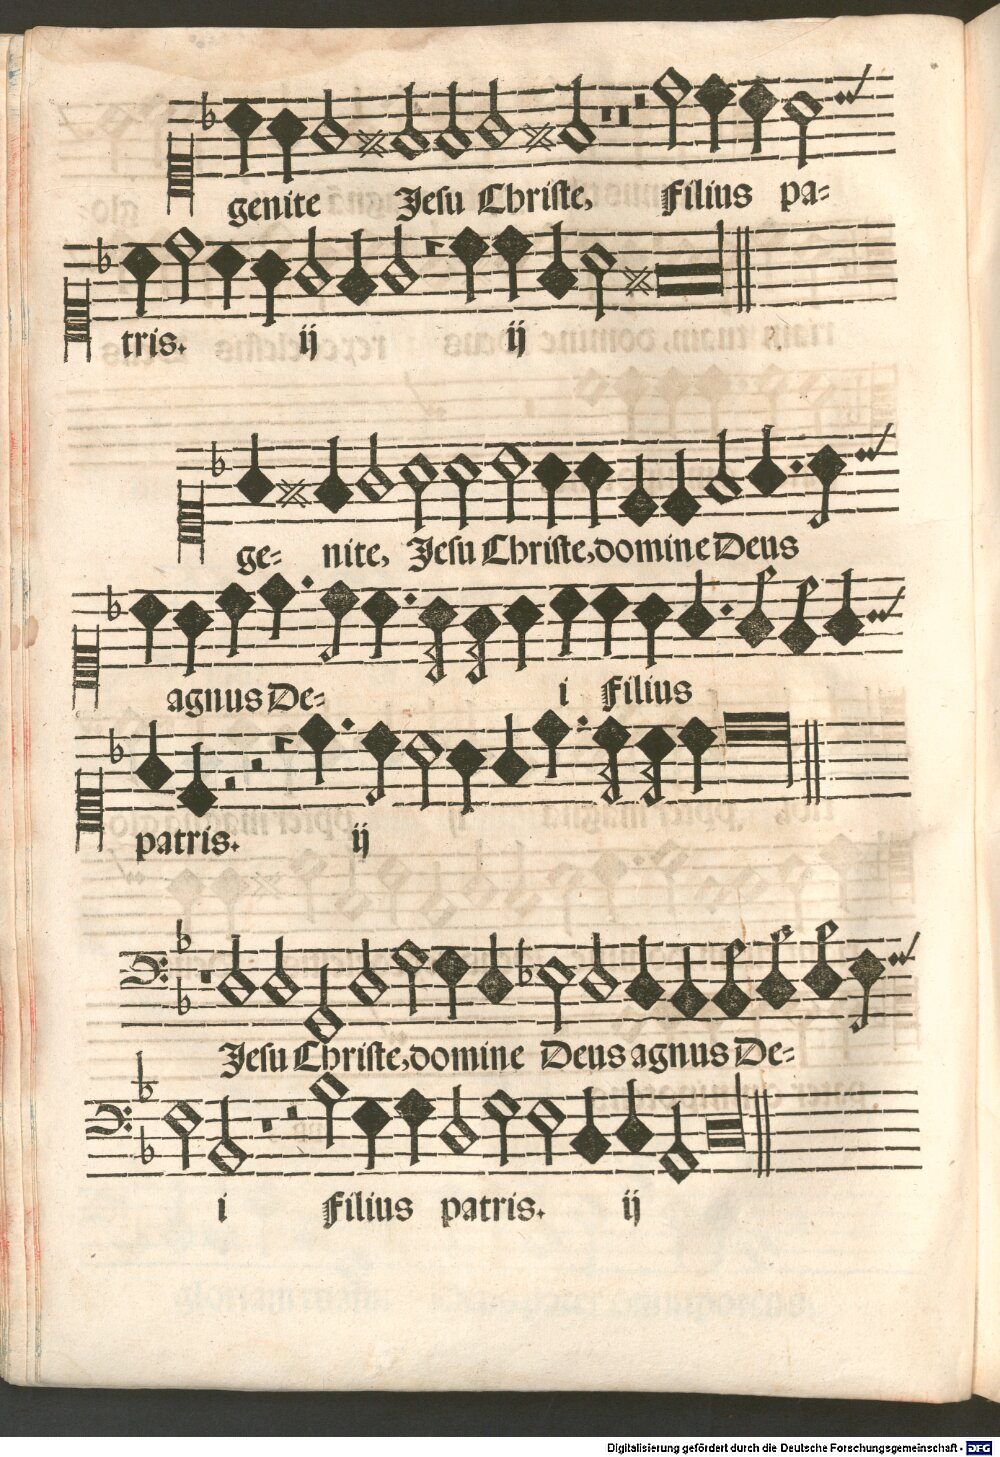 genite Jesu Christe, Filius pa-
tris. ij ij
ge- nite, Jesu Christe, domine Deus
agnus De- i Filius
patris. ij
Jesu Christe, domine Deus agnus De-
i Filius patris. ij
Digitalisierung gefördert durch die Deutsche Forschungsgemeinschaft - DFG